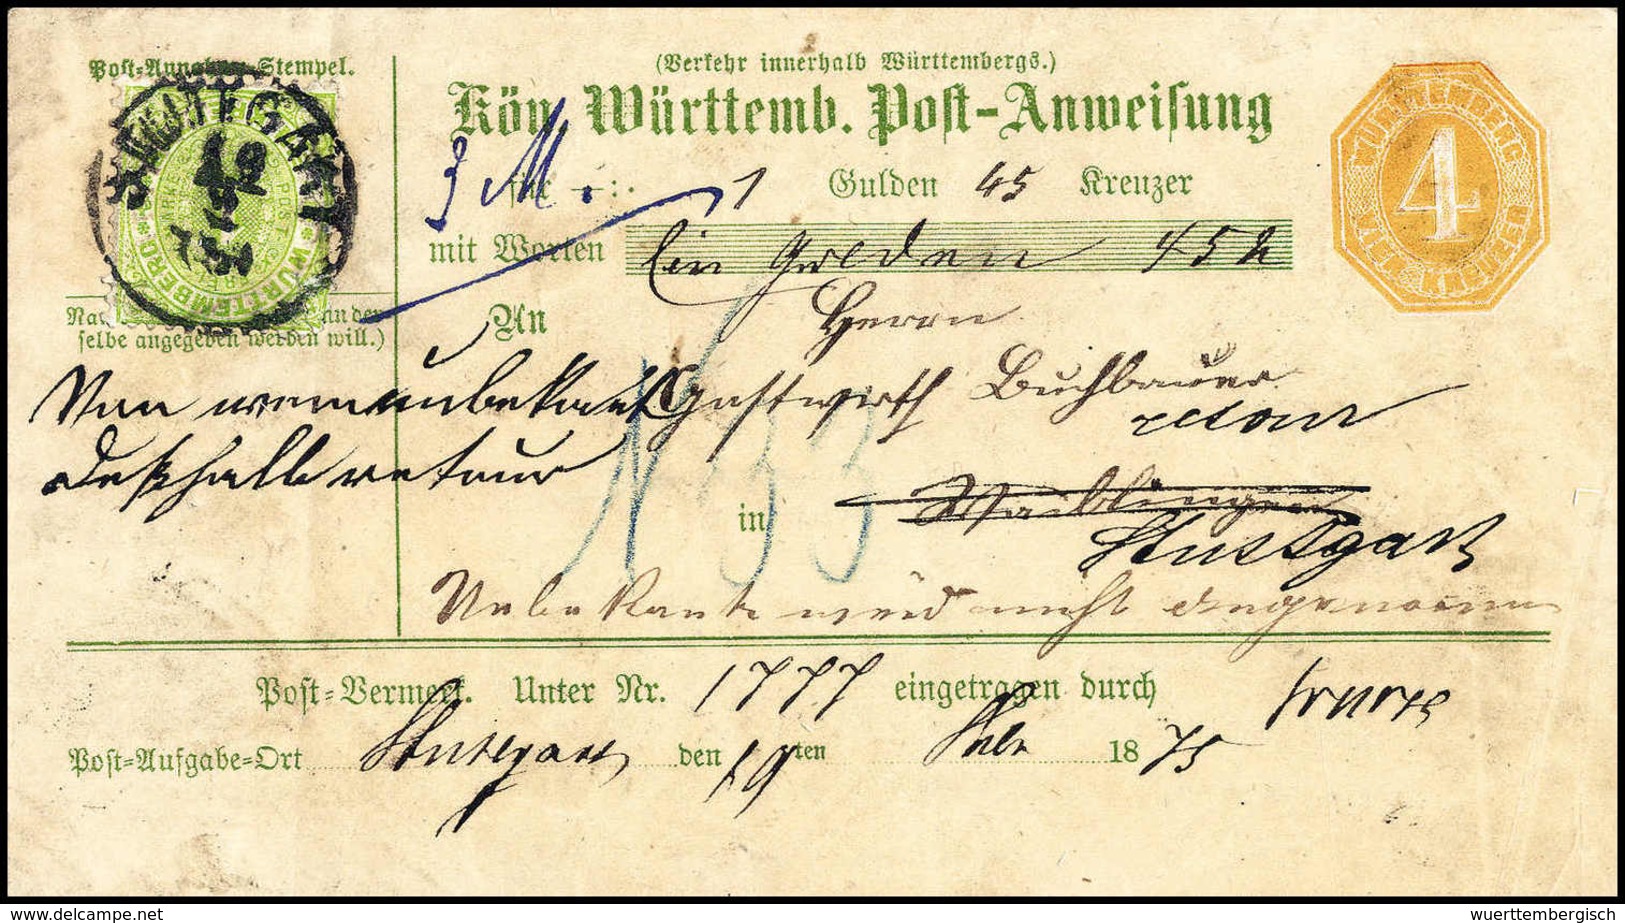 (Verkehr innerhalb Württembergs.)
Post-Annahme Stempel.
Kön. Württemb. Post-Anweisung
WÜRTTEMBERG
4
STUTTGART
WÜRTTEMBERG
3 M.
1 Gulden 45 Kreuzer
mit Worten Ein Gulden 45 k
An Herrn
selbe angegeben werden will.)
Von wem unbekannt
Gastwirth Buchbauer
retour
deßhalb retour
N 33
in Waiblingen
Stuttgart
Unbekannt wird nicht angenommen
Post-Vermerk. Unter Nr. 1777 eingetragen durch
Post-Aufgabe-Ort Stuttgart den 19ten 1875
www.delcampe.net
wuerttembergisch